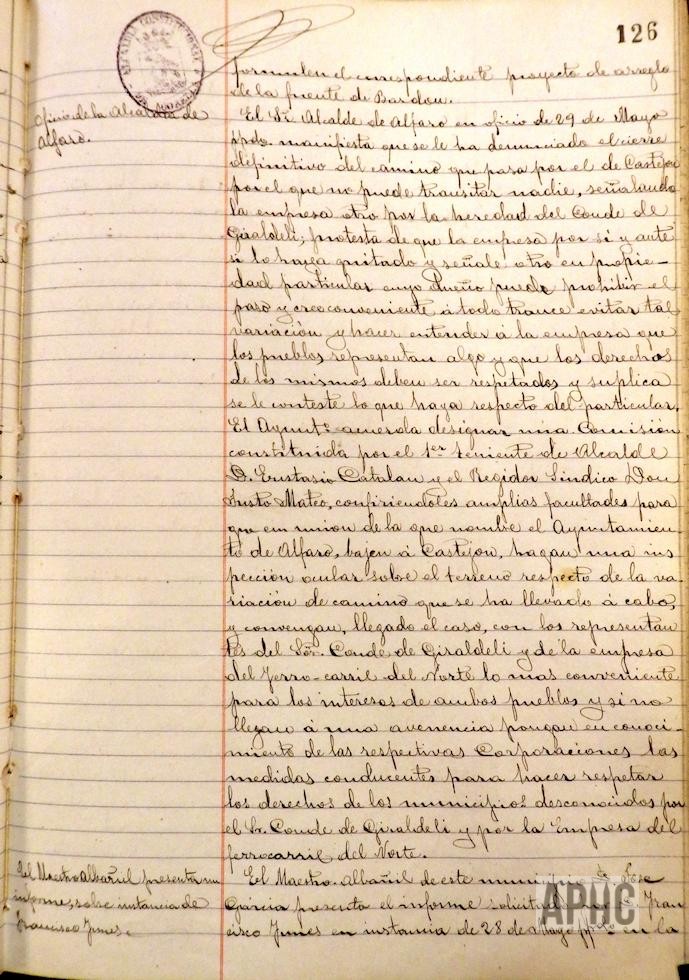 126
ALCALDIA CONSTITUCIONAL
formulen el correspondiente proyecto de arreglo
de la fuente de Bardou.
Oficio de la Alcaldía de
Alfaro.
El Sr. Alcalde de Alfaro en oficio de 29 de Mayo
ppdo. manifiesta que se le ha denunciado el cierre
definitivo del camino que pasa por el de Castejon
por el que no puede transitar nadie, señalando
la empresa otro por la heredad del Conde de
Giraldeli; protesta de que la empresa por si y ante
si lo haya quitado y señale otro en propie-
dad particular cuyo dueño puede prohibir el
paso y cree conveniente á todo trance evitar tal
variación y hacer entender á la empresa que
los pueblos representan algo y que los derechos
de los mismos deben ser respetados y suplica
se le conteste lo que haya respecto del particular.
El Ayuntº acuerda designar una Comisión
constituida por el 1er teniente de Alcalde
D. Eustasio Catalan y el Regidor Sindico Don
Justo Mateo, confiriendoles amplias facultades para
que en union de la que nombre el Ayuntamien-
to de Alfaro, bajen á Castejon, hagan una ins
pección ocular sobre el terreno respecto de la va-
riación de camino que se ha llevado á cabo,
y convengan, llegado el caso, con los representan
tes del Sor. Conde de Giraldeli y de la empresa
del Ferro-carril del Norte lo mas conveniente
para los intereses de ambos pueblos y si no
llegan á una avenencia pongan en conoci-
miento de las respectivas Corporaciones las
medidas conducentes para hacer respetar
los derechos de los municipios desconocidos por
el Sr. Conde de Giraldeli y por la Empresa del
ferrocarril del Norte.
El Maestro Albañil presenta un
informe, sobre instancia de
Francisco Jimes.
El Maestro Albañil de este municipio D. Jose
Garcia presenta el informe solicitado por D. Fran
cisco Jimes en instancia de 28 de Mayo ppdo en la
APHC